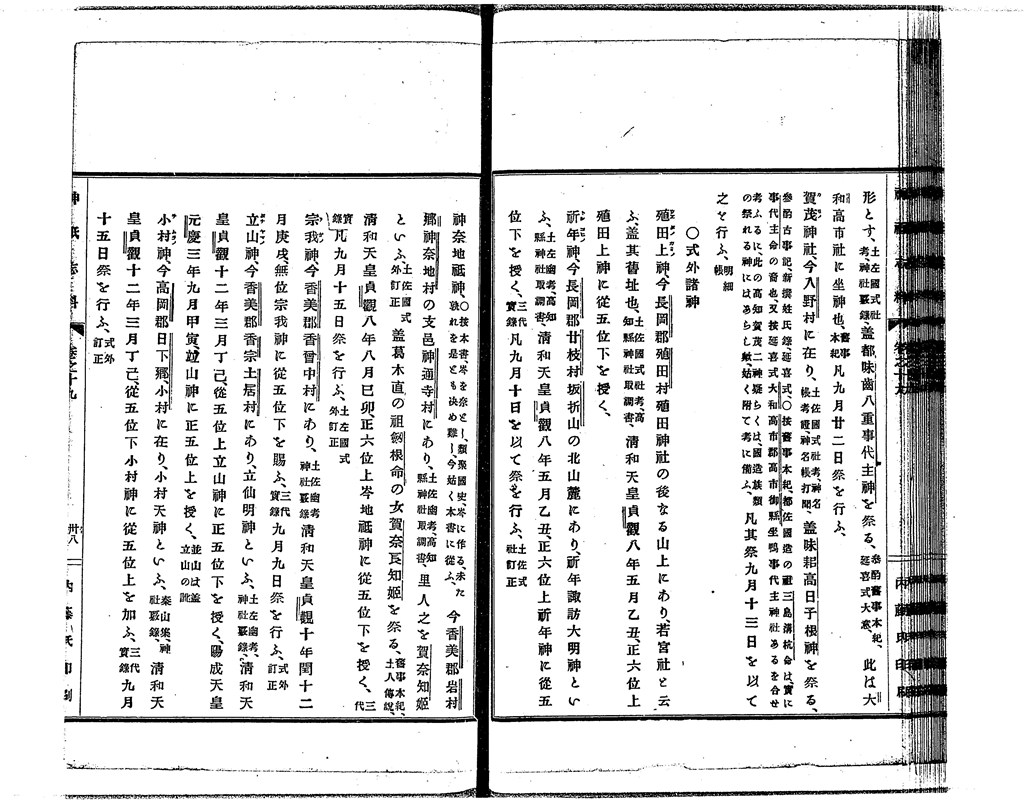 形とす、土左國式社考、神社覈錄蓋都味齒八重事代主神を祭る、參酌舊事本紀、延喜式大意、此は大
和高市社に坐神也、舊事本紀凡九月廿二日祭を行ふ、
賀茂神社、今入野村に在り、土佐國式社考、神名帳考證、神名帳打聞、蓋味耜高日子根神を祭る、
參酌古事記、新撰姓氏錄、延喜式、〇按舊事本紀、都佐國造の祖三島溝杭命は、實に
事代主命の裔也、又按延喜式大和高市郡高市御縣坐鴨事代主神社あるを合せ
考ふるに、此の高知賀茂二神疑らくは、國造族類
の祭れる神にはあらじ歟、姑く附て考に備ふ、凡其祭九月十三日を以て
之を行ふ、明細帳
〇式外諸神
殖田上神、今長岡郡殖田村殖田神社の後なる山上にあり、若宮社と云
ふ、蓋其舊址也、土佐國式社考、高知縣神社取調書、清和天皇貞觀八年五月乙丑、正六位上
殖田上神に從五位下を授く、
祈年神、今長岡郡廿枝村坂折山の北山麓にあり、祈年諏訪大明神とい
ふ、土左幽考、高知縣神社取調書、清和天皇貞觀八年五月乙丑、正六位上祈年神に從五
位下を授く、三代實錄凡九月十日を以て祭を行ふ、土佐式社訂正
神奈地祇神、〇按本書、岑を奈とし、類聚國史、岑に作る、未た孰れを是とも決め難し、今姑く本書に從ふ、今香美郡岩村
鄕神奈地村の支邑神通寺村にあり、土佐幽考、高知縣神社取調書、里人之を賀奈知姬
といふ、土佐國式外訂正蓋葛木直の祖劔根命の女賀奈良知姬を祭る、舊事本紀、土人傳說、
清和天皇貞觀八年八月巳卯、正六位上岑地祗神に從五位下を授く、三代
實錄凡九月十五日祭を行ふ、土左國式外訂正
宗我神、今香美郡香晉中村にあり、土佐幽考神社覈錄清和天皇貞觀十年閏十二
月庚戌、無位宗我神に從五位下を賜ふ、三代實錄九月九日祭を行ふ、式外訂正
立山神、今香美郡香宗土居村にあり、立仙明神といふ、土左幽考、神社覈錄、清和天
皇貞觀十二年三月丁己、從五位上立山神に正五位下を授く、陽成天皇
元慶三年九月甲寅、並山神に正五位上を授く、並山は蓋立山の訛
小村神、今高岡郡日下鄕小村に在り、小村天神といふ、秦山集、神社覈錄、清和天
皇貞觀十二年三月丁己、從五位下小村神に從五位上を加ふ、三代實錄九月
十五日祭を行ふ、式外訂正
卅八